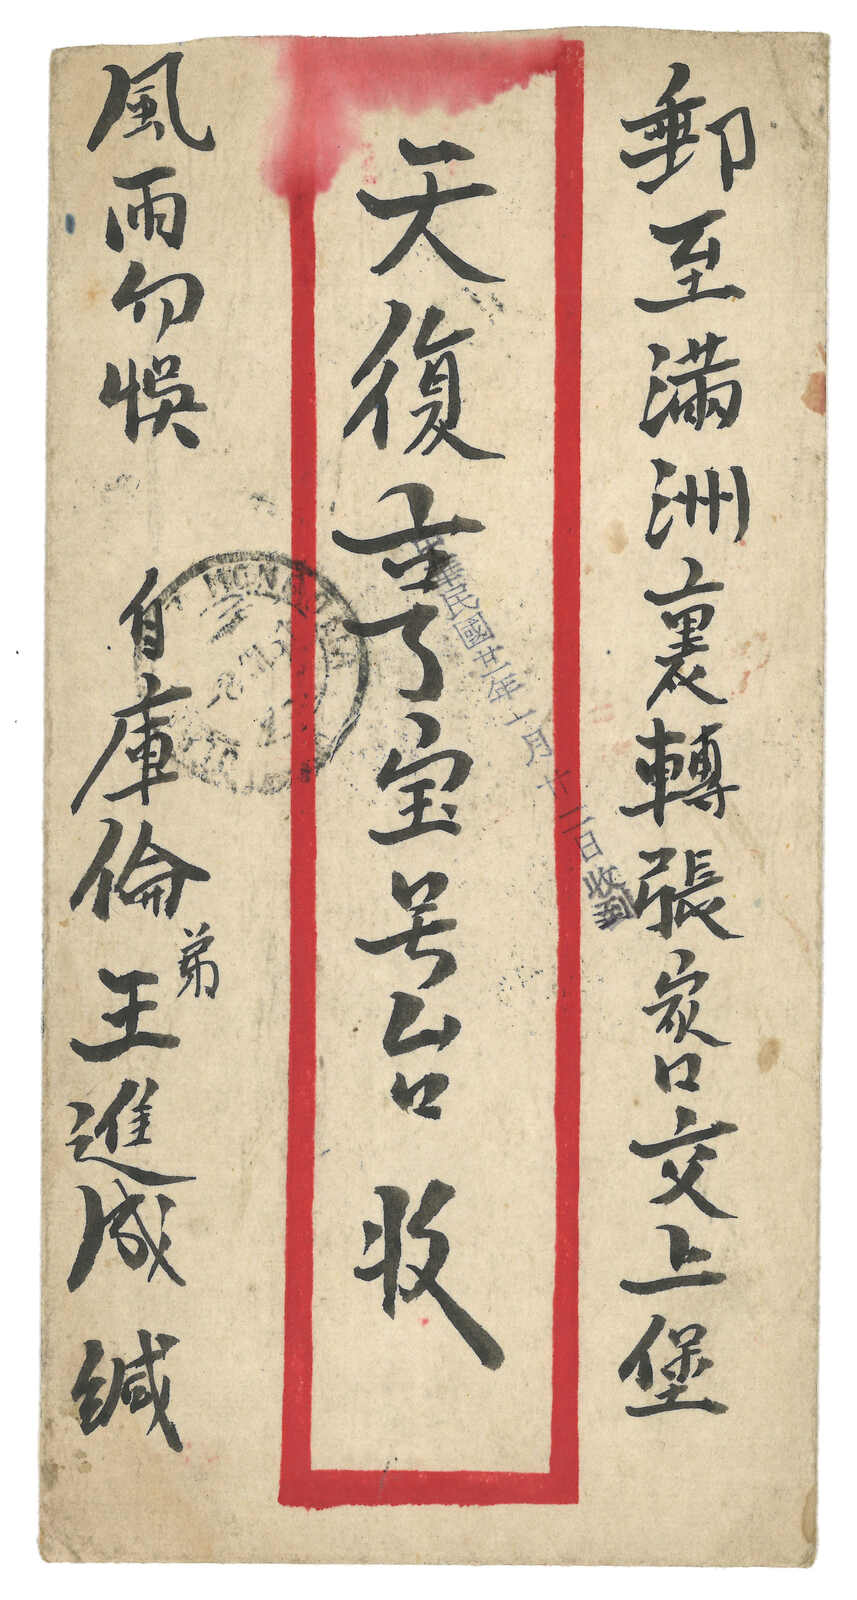 郵至滿洲裏轉張家口交上堡
天復亨宝号台收
風雨勿悞
自庫倫弟王進成緘
中華民國廿一年一月十二日收到